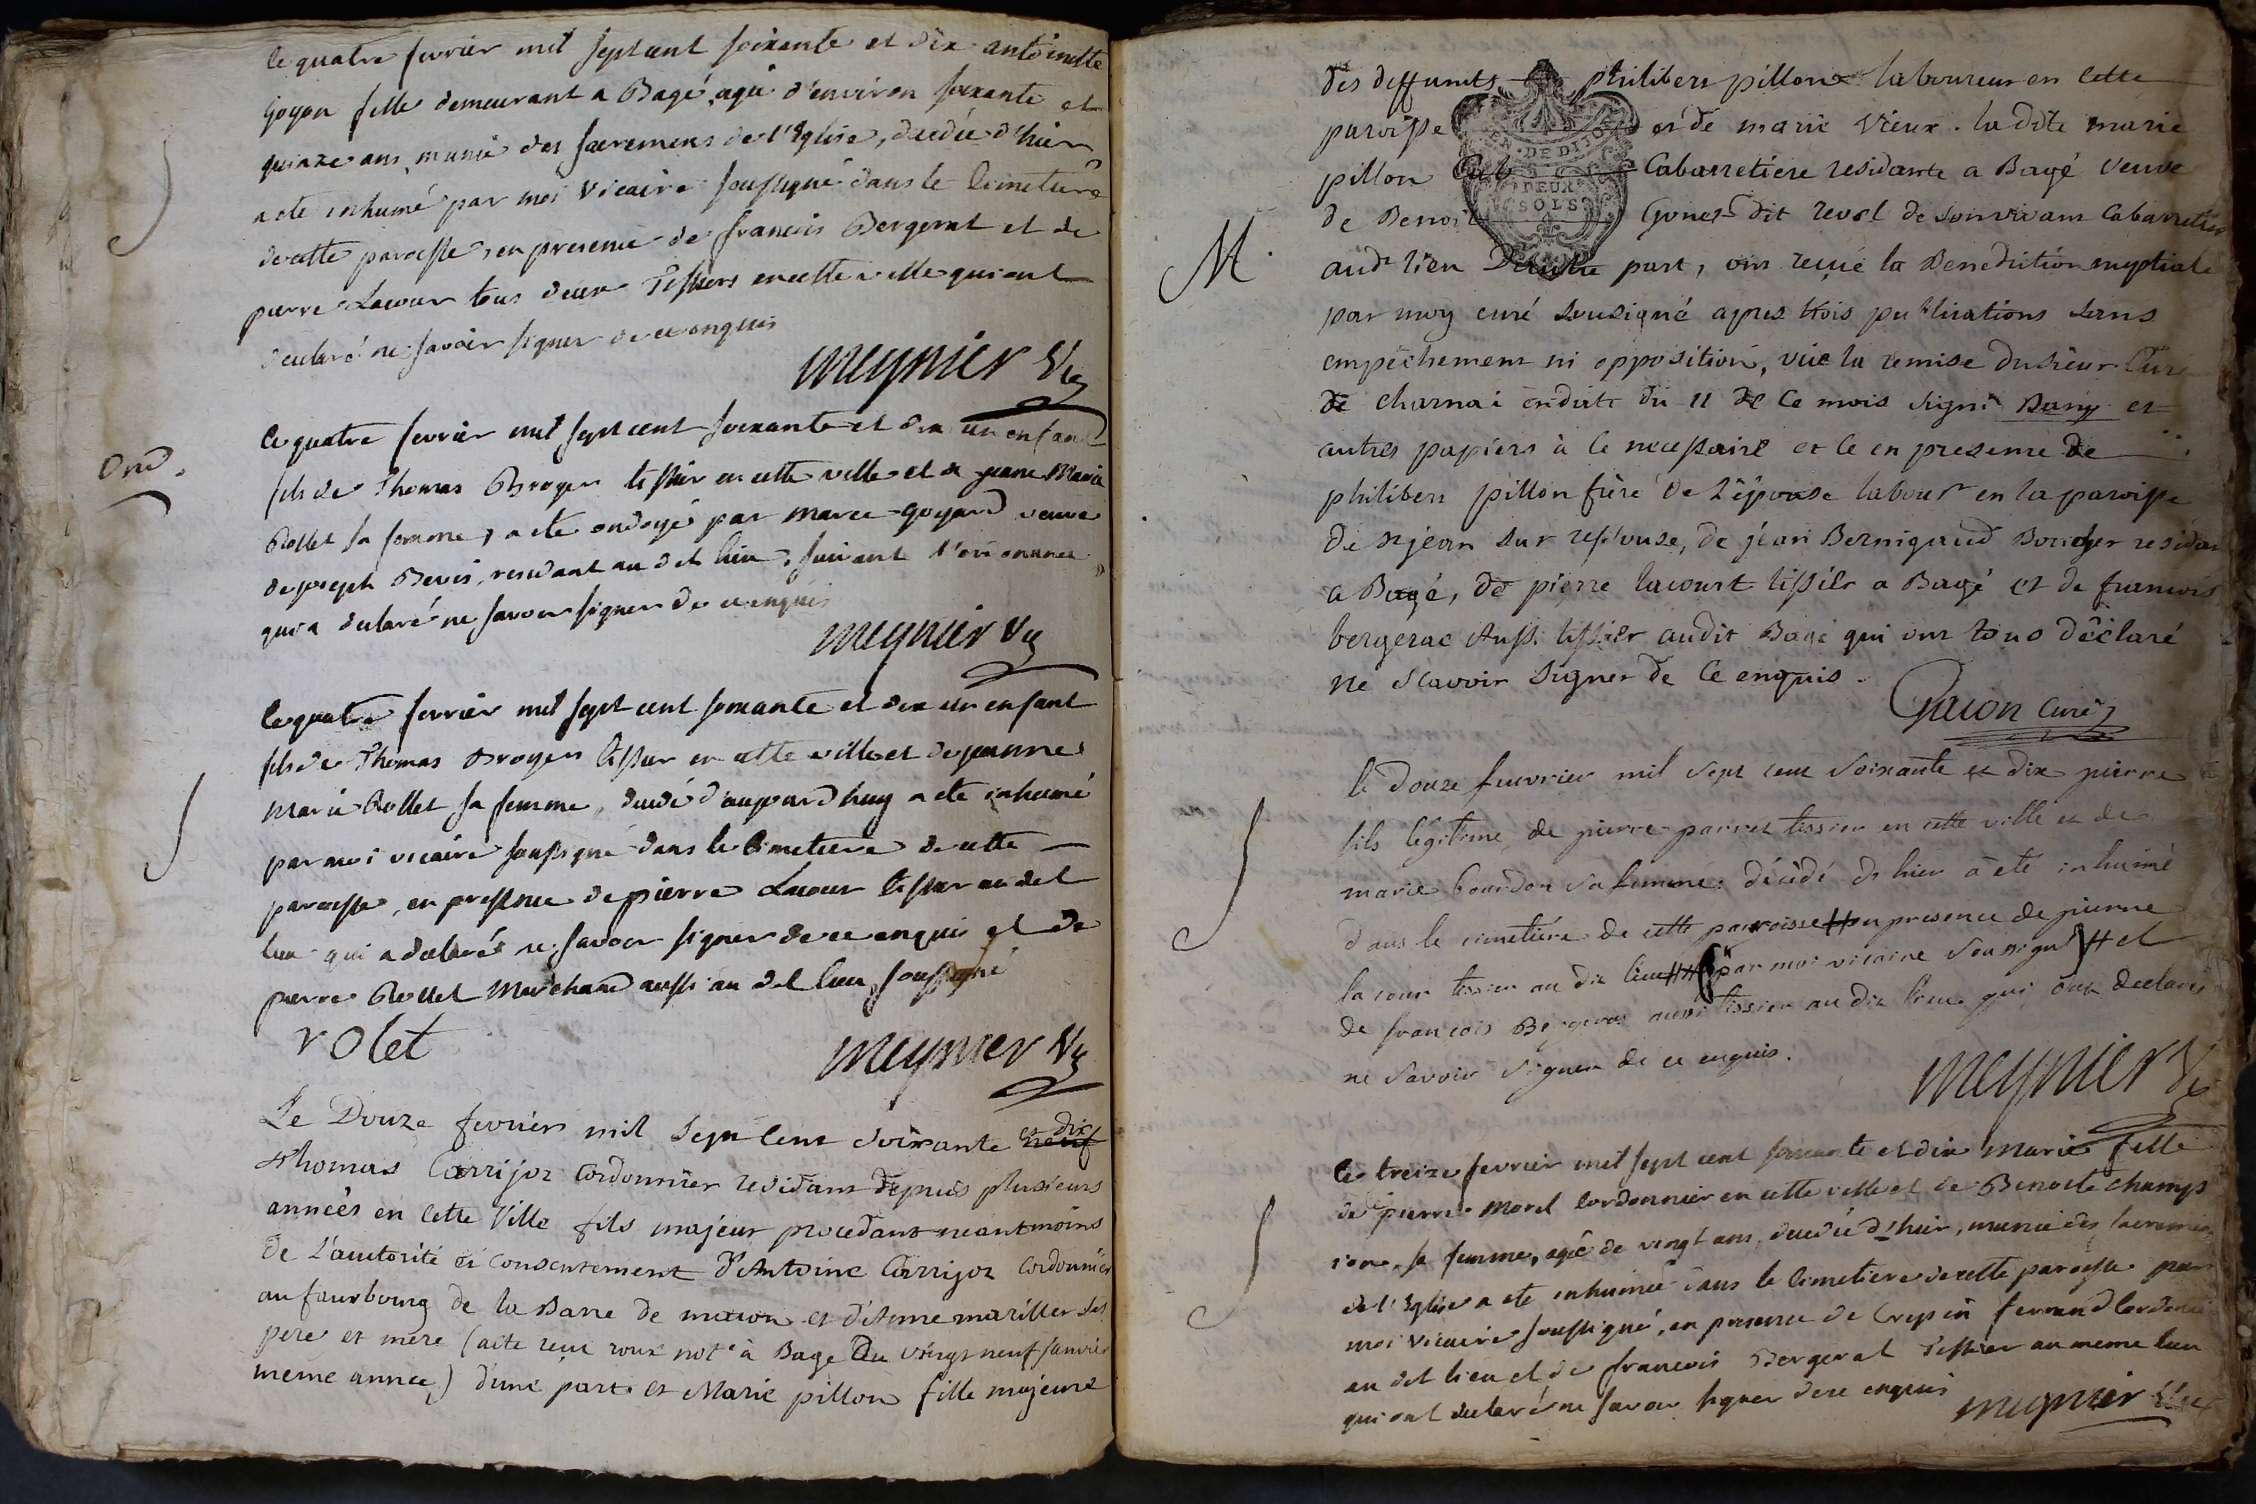 le quatre fevrier mil sept cent soixante et dix antoinette
Goyon fille demeurant a Bagé, agée d'environ soixante et
quinze ans, munie des sacremens de l'Eglise, decedée d'hier
a ete inhumé par moi Vicaire soussigné dans le Cimetiere
de cette paroisse, en presence de francois Bergerat et de
pierre Lacour tous deux Tissiers en cette ville qui ont
declaré ne savoir signer de ce enquis
Meynier Vic
Ond.
le quatre fevrier mil sept cent soixante et dix un enfant
fils de Thomas Broyer tissier en cette ville et de jeanne Marie
Rollet sa femme, a ete ondoyé par marie goyard veuve
de joseph Bevis, residant au dit lieu, suivant l'ordonnance
qui a declaré ne savoir signer de ce enquis
meynier Vic
S
le quatre fevrier mil sept cent soixante et dix un enfant
fils de Thomas Broyer tissier en cette ville et de jeanne
Marie Rollet sa femme, decedé d'aujourd huy a ete inhumé
par moi vicaire soussigné dans le Cimetiere de cette
paroisse, en presence de pierre Lacour tissier au dit
lieu qui a declaré ne savoir signer de ce enquis et de
pierre Rollet Marchand aussi au dit lieu soussigné
rolet
meynier Vic
Le Douze fevrier mil sept cent soixante neuf et dix
Thomas Carrijor Cordonnier residant depuis plusieurs
années en cette Ville fils majeur procedant neantmoins
de L'autorité et consentement d'Antoine Carrijor Cordonnier
au faurbourg de la Barre de macon et d'Anne mariller ses
pere et mere (acte reçu roux not.e à Bagé Du vingt neuf janvier
meme année) d'une part et Marie pillon fille majeure
M.
des deffunts philibert pillon laboureur en cette
paroisse et de marie Vieux. ladite marie
pillon Cab Cabarretiere residante a Bagé veuve
EN. DE DIJON
DEUX
SOLS
de Benoit Gonet dit revol de son vivant Cabarretier
aud. lieu D'autre part, ont reçue la Benediction nuptiale
par moy curé sousigné apres trois publications sans
empêchement ni opposition, vüe la remise du sieur Curé
de charnai en date du 11 de ce mois signé Dany et
autres papiers à ce necessaire et ce en presence de
philibert pillon frère de l'épouse labour.r en la paroisse
de St jean sur ressouse, de jean Bernigaud Boucher residant
a Bagé, de pierre lacourt tissier a Bagé et de francois
bergerac Aussi tissier audit Bagé qui ont tous déclaré
ne scavoir signer de ce enquis.
Gacon curé
S
le douze feuvrier mil sept cent soixante et dix pierre
fils légitime de pierre parret tissier en cette ville et de
marie bourdon sa femme, décédé d'hier a été inhumé
dans le cimetiére de cette parroisse # en presence de pierre
lacour tissier au dit lieu (# par moi vicaire soussigné #) et
de francois Bergerat aussi tissier au dit lieu qui ont declaré
ne savoir signer de ce enquis.
meynier Vic
S
le treize fevrier mil sept cent soixante et dix Marie fille
de pierre Morel Cordonnier en cette ville et de Benoite champs
sa femme, agée de vingt ans, decedée d'hier, munie des sacremens
de l'Eglise a ete inhumée dans le Cimetiere de cette paroisse par
moi vicaire soussigné, en presence de Crepin ferrand Cordonnier
au dit lieu et de francois Bergerat Tissier au meme lieu
qui ont declaré ne savoir signer de ce enquis
meynier Vic